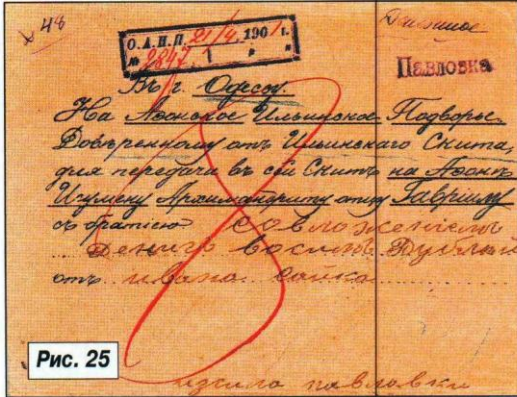 № 48
Денежное
О.А.И.П. 21/4 1901 г.
№ 2847
Павловка
Въ г. Одессу.
На Аѳонское Ильинское Подворье,
Довѣренному отъ Ильинскаго Скита,
для передачи въ сей Скитъ на Аѳонѣ
Игумену Архимандриту отцу Гавріилу
съ братіею Совложеніемъ
Денигъ восимь Рублей
отъ ивана
8
изсила павловки
Рис. 25